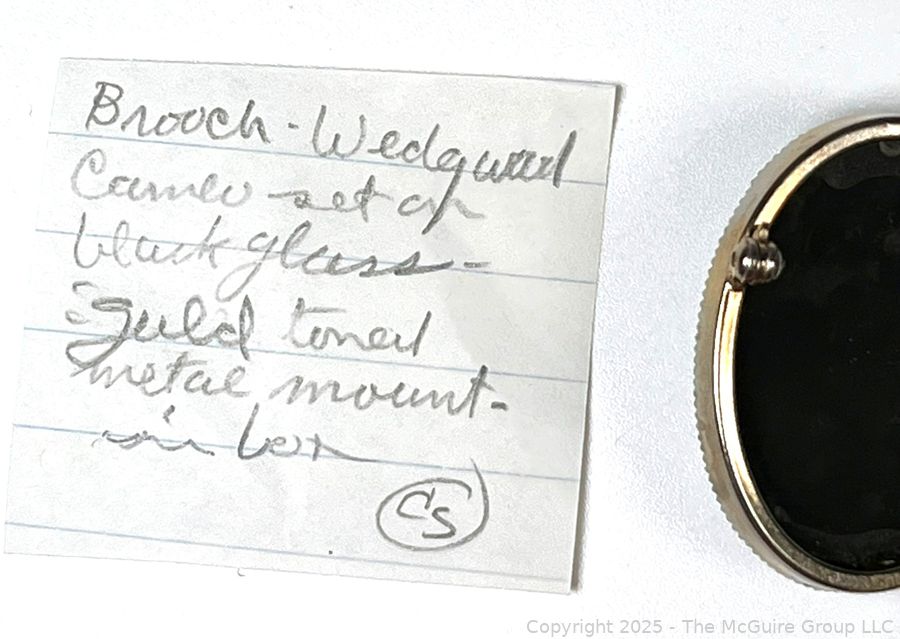 Brooch - Wedgwood
Cameo set on
black glass -
gold toned
metal mount -
in box
CS
Copyright 2025 - The McGuire Group LLC